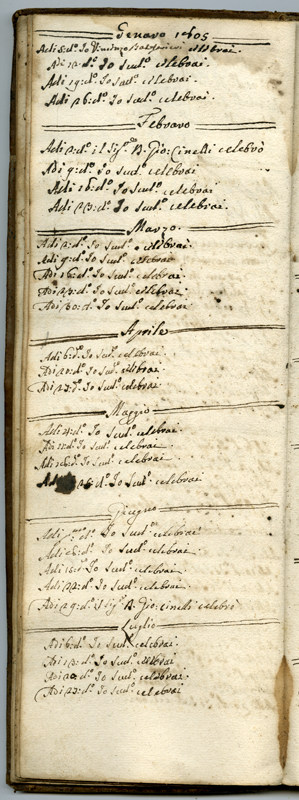 Genaro 1605
Adi 5: d.º Io celebrai.
Adi 12: d.º Io sud.º celebrai.
Adi 19: d.º Io sud.º celebrai.
Adi 26: d.º Io sud.º celebrai.
Febraro
Adi 2: d.º il Sig.r B. Gio: Cinelli celebrò
Adi 9: d.º Io sud.º celebrai.
Adi 16: d.º Io sud.º celebrai.
Adi 23: d.º Io sud.º celebrai.
Marzo.
Adi 2: d.º Io sud.º celebrai.
Adi 9: d.º Io sud.º celebrai.
Adi 16: d.º Io sud.º celebrai.
Adi 23: d.º Io sud.º celebrai.
Adi 30: d.º Io sud.º celebrai
Aprile
Adi 6: d.º Io sud.º celebrai.
Adi d.º Io sud.º celebrai.
Adi 27: d.º Io sud.º celebrai
Maggio
Adi d.º Io sud.º celebrai.
Adi d.º Io sud.º celebrai.
Adi d.º Io sud.º celebrai.
d.º Io sud.º celebrai.
Giugno
Adi d.º Io sud.º celebrai.
Adi 8: d.º Io sud.º celebrai.
Adi 15: d.º Io sud.º celebrai.
Adi 22: d.º Io sud.º celebrai.
Adi 29: d.º il Sig.r B. Gio: Cinelli celebrò
Luglio
Adi 6: d.º Io sud.º celebrai.
Adi 13: d.º Io sud.º celebrai
Adi 20: d.º Io sud.º celebrai.
Adi 27: d.º Io sud.º celebrai